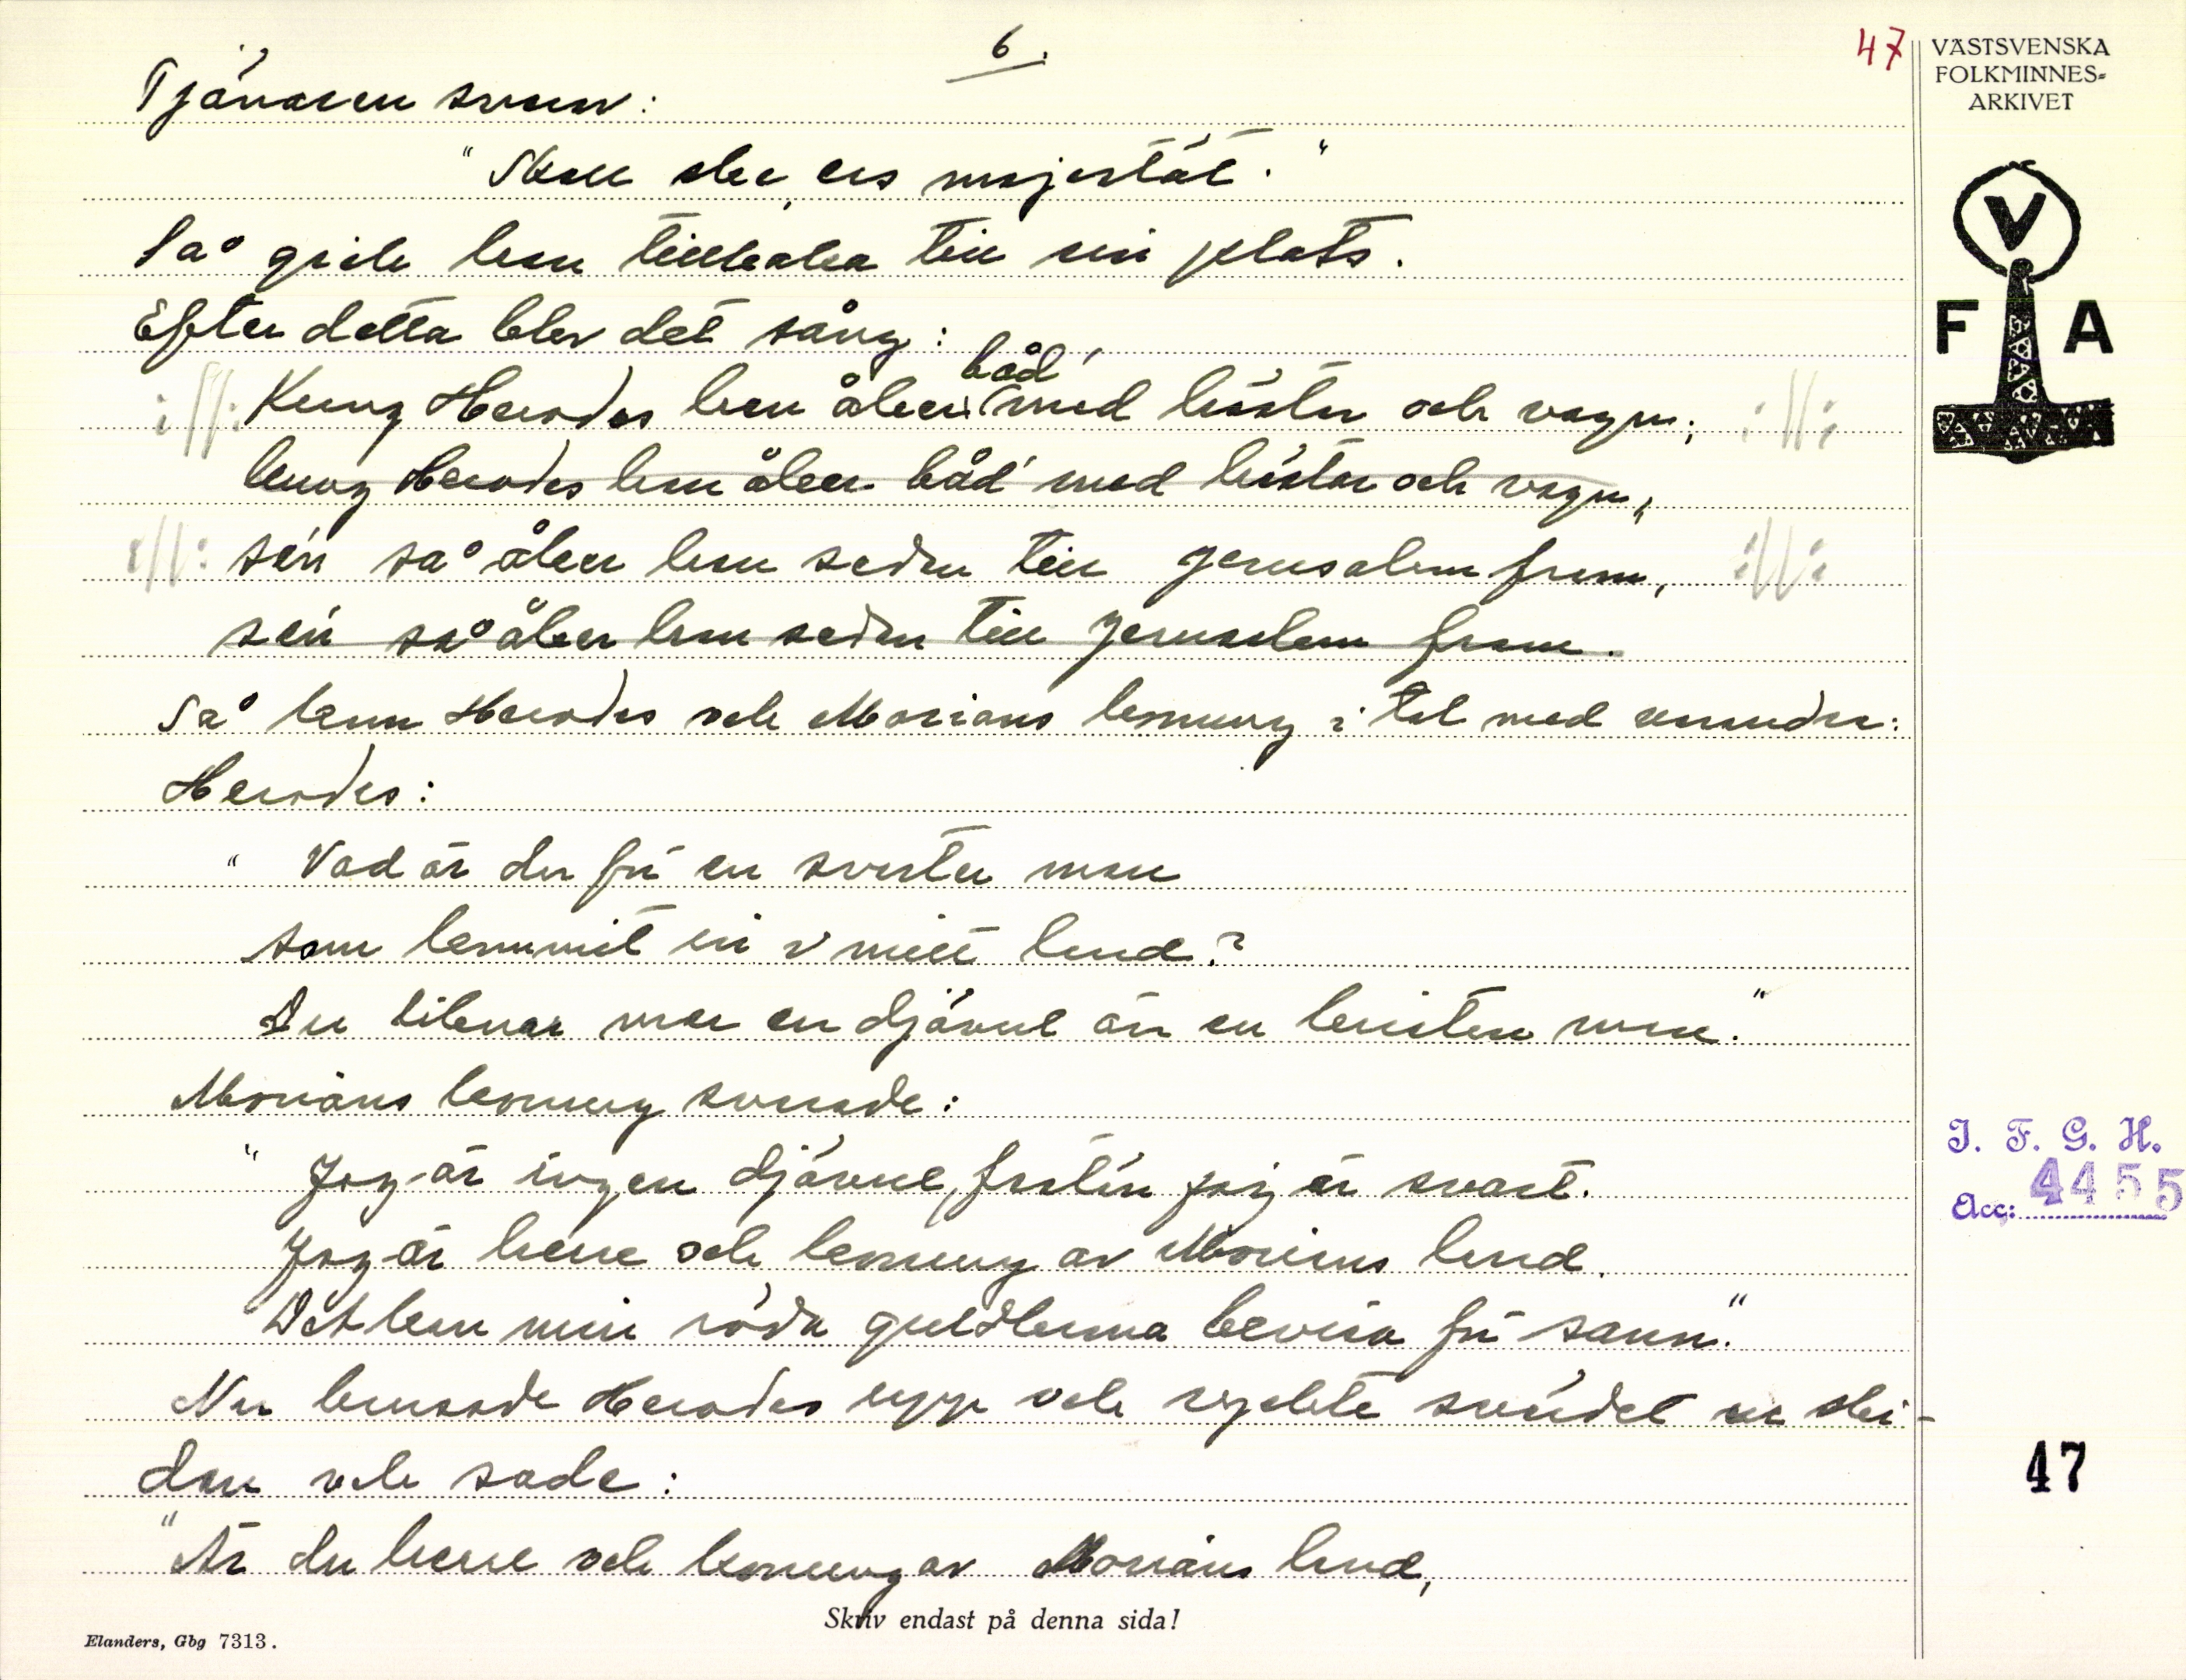 6.
47
VÄSTSVENSKA
FOLKMINNES-
ARKIVET
Tjänaren svarar:
"Skall ske, ers majestät."
V
F A
Så gick han tillbaka till sin plats.
Efter detta blev det sång:
båd'
:||: Kung Herodes han åker med hästar och vagn; :||:
kung Herodes han åker båd' med hästar och vagn,
:||: sén så åker han sedan till Jerusalem fram, :||:
sén så åker han sedan till Jerusalem fram.
Så kom Herodes och Morians konung i tal med varandra:
Herodes:
"Vad är du för en svarter man
som kommit in i mitt land?
Du liknar mer en djävul än en kristen man."
Morians konung svarade:
"Jag är ingen djävul, fastän jag är svart.
Jag är herre och konung av Morians land.
Det kan min röda guldkrona bevisa för sann."
Nu rusade Herodes upp och ryckte svärdet ur ski-
dan och sade:
"Är du herre och konung av Morians land,
I. F. G. H.
Acc: 4455
47
Skriv endast på denna sida!
Elanders, Gbg 7313.